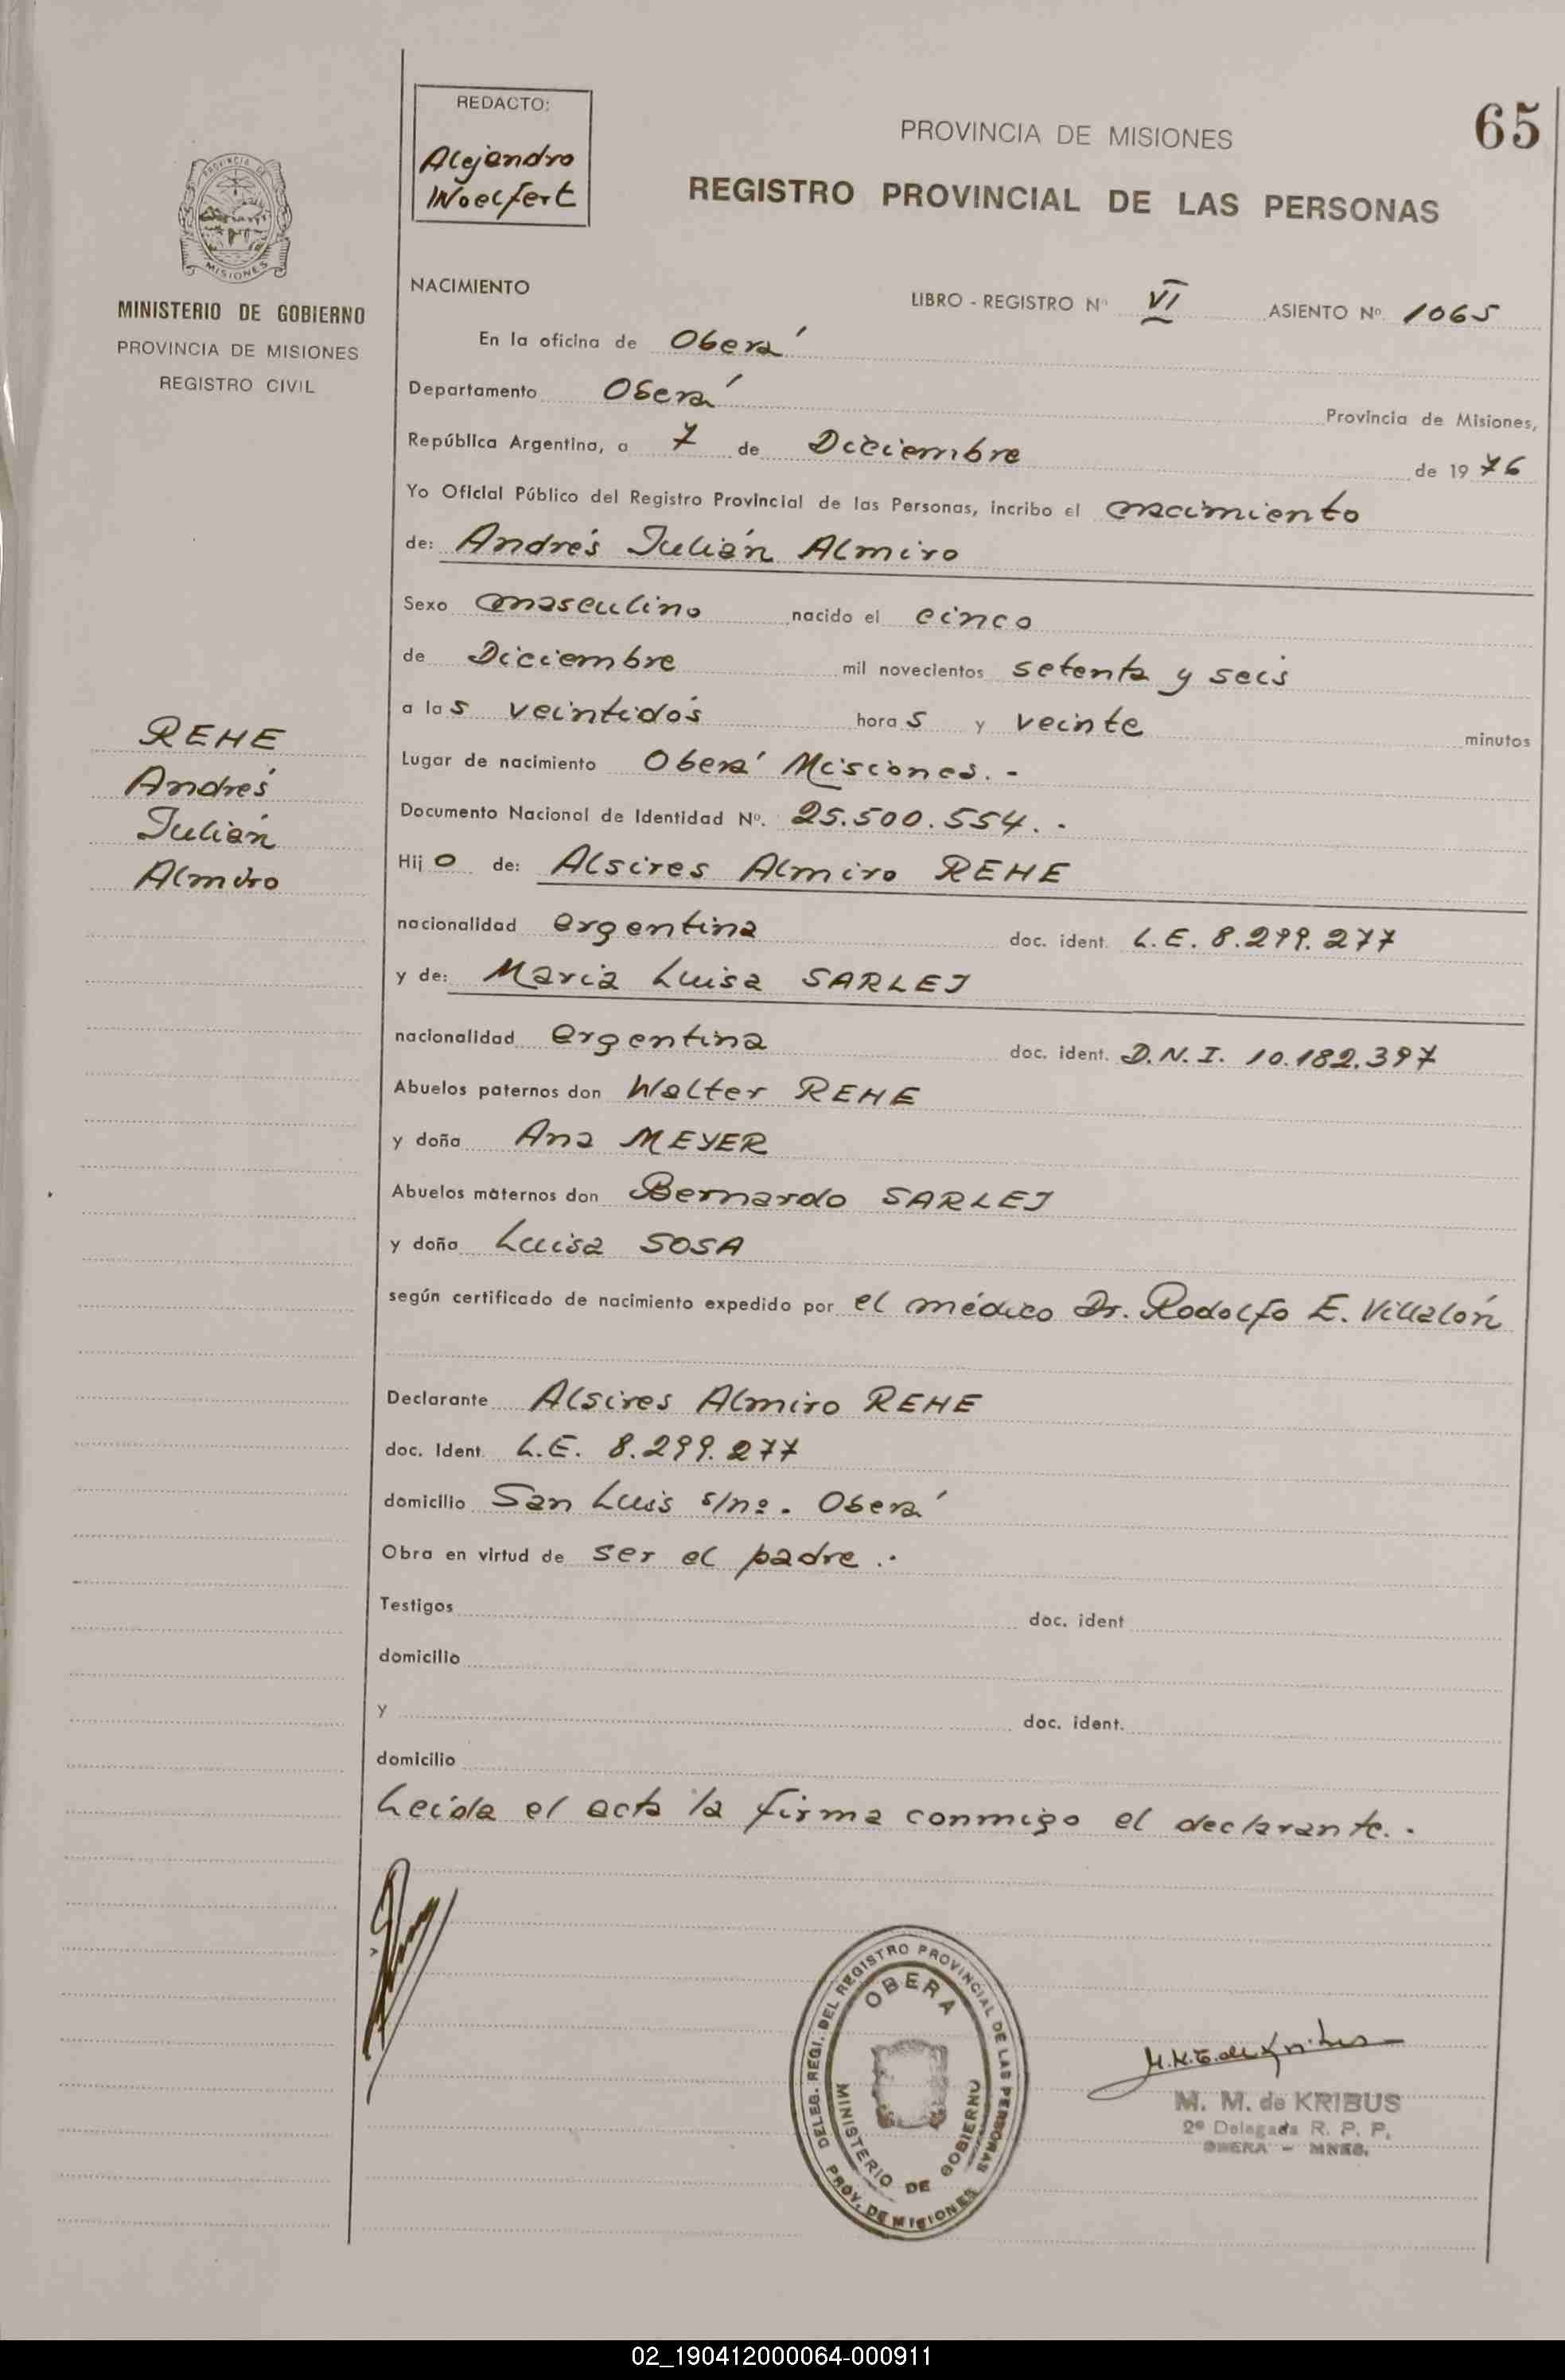 65
REDACTO:
Alejandro
Woelfert
PROVINCIA DE MISIONES
REGISTRO PROVINCIAL DE LAS PERSONAS
PROVINCIA DE
MISIONES
MINISTERIO DE GOBIERNO
PROVINCIA DE MISIONES
REGISTRO CIVIL
NACIMIENTO
LIBRO - REGISTRO Nº VI ASIENTO Nº 1065
En la oficina de Oberá
Departamento Oberá Provincia de Misiones,
República Argentina, a 7 de Diciembre de 1976
Yo Oficial Público del Registro Provincial de las Personas, incribo el nacimiento
de: Andrés Julián Almiro
Sexo masculino nacido el cinco
de Diciembre mil novecientos setenta y seis
a las veintidós horas y veinte minutos
Lugar de nacimiento Oberá Misiones. -
Documento Nacional de Identidad Nº. 25.500.554. -
Hijo de: Alsires Almiro REHE
nacionalidad argentina doc. ident. L.E. 8.299.277
y de: Maria Luisa SARLEJ
nacionalidad argentina doc. ident. D.N.I. 10.182.397
Abuelos paternos don Walter REHE
y doña Ana MEYER
Abuelos maternos don Bernardo SARLEJ
y doña Luisa SOSA
según certificado de nacimiento expedido por el médico Dr. Rodolfo E. Villalón
Declarante Alsires Almiro REHE
doc. Ident. L.E. 8.299.277
domicilio San Luis s/nº. Oberá
Obra en virtud de ser el padre .-
Testigos doc. ident
domicilio
y doc. ident.
domicilio
Leída el acta la firma conmigo el declarante. -
REHE
Andrés
Julián
Almiro
DELEG. REGI. DEL REGISTRO PROVINCIAL DE LAS PERSONAS
OBERA
MINISTERIO DE GOBIERNO
PROV. DE MISIONES
M. M. de KRIBUS
2º Delegada R. P. P.
OBERA - MNES.
02_190412000064-000911